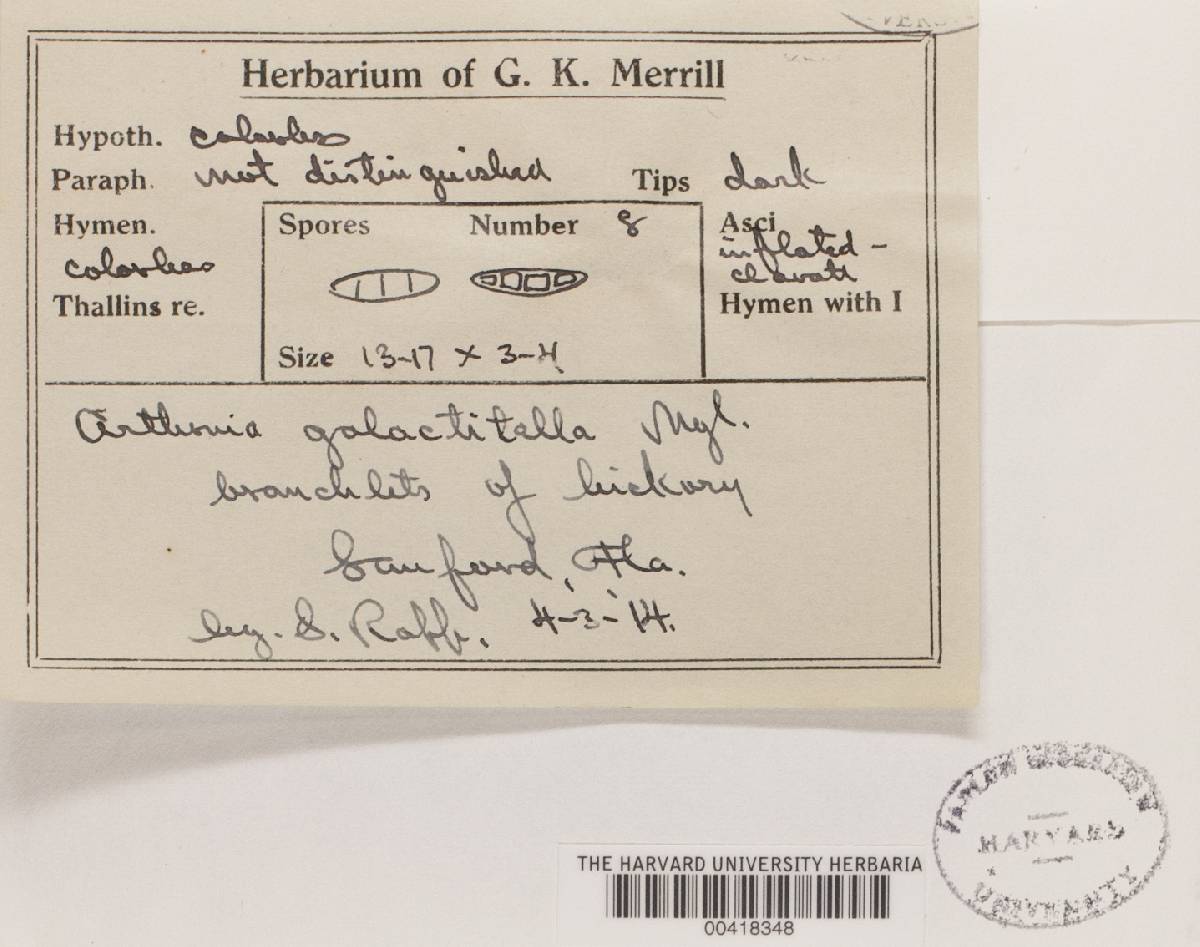 VERS
Herbarium of G. K. Merrill
Hypoth. colorless
Paraph. not distinguished Tips dark
Hymen. colorless
Spores Number 8
Asci inflated - clavate
Thallins re.
Hymen with I
Size 13-17 x 3-4
Arthonia galactitella Nyl.
branchlets of hickory
Sanford, Fla.
leg. S. Rapp. 4-3-14.
THE HARVARD UNIVERSITY HERBARIA
00418348
FARLOW HERBARIUM
HARVARD
UNIVERSITY